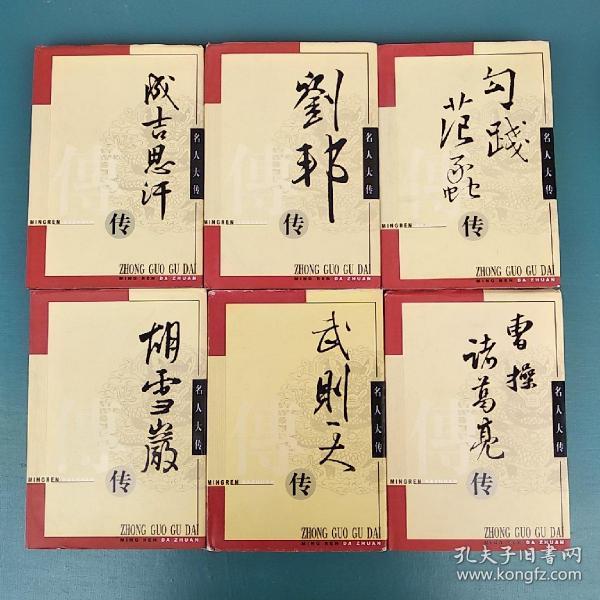 成吉思汗
名人大传
傳
MINGREN
传
ZHONG GUO GU DAI
MING REN DA ZHUAN
劉邦
名人大传
傳
MINGREN
传
ZHONG GUO GU DAI
MING REN DA ZHUAN
勾践
范蠡
名人大传
傳
MINGREN
传
ZHONG GUO GU DAI
MING REN DA ZHUAN
胡雪巖
名人大传
傳
MINGREN
传
ZHONG GUO GU DAI
MING REN DA ZHUAN
武則天
名人大传
傳
MINGREN
传
ZHONG GUO GU DAI
MING REN DA ZHUAN
曹操
诸葛亮
名人大传
傳
MINGREN
传
ZHONG GUO GU DAI
MING REN DA ZHUAN
孔夫子旧书网
www.kongfz.com